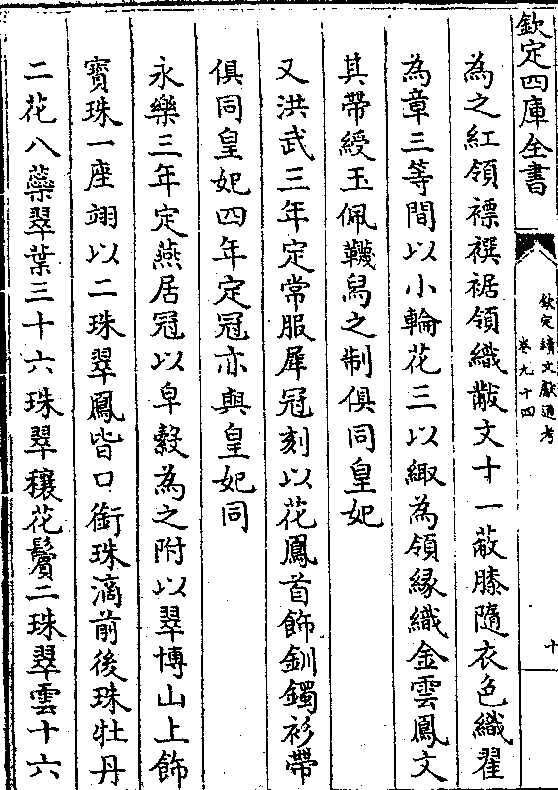 欽定四庫全書
欽定續文獻通考
卷九十四
十
為之紅領褾襈裾領織黻文十一蔽膝隨衣色織翟
為章三等間以小輪花三以緅為領緣織金雲鳳文
其帶綬玉佩韈舄之制俱同皇妃
又洪武三年定常服犀冠刻以花鳳首飾釧鐲衫帶
俱同皇妃四年定冠亦與皇妃同
永樂三年定燕居冠以皁縠為之附以翠博山上飾
寳珠一座翊以二珠翠鳳皆口銜珠滴前後珠牡丹
二花八蘂翠葉三十六珠翠穰花鬢二珠翠雲十六